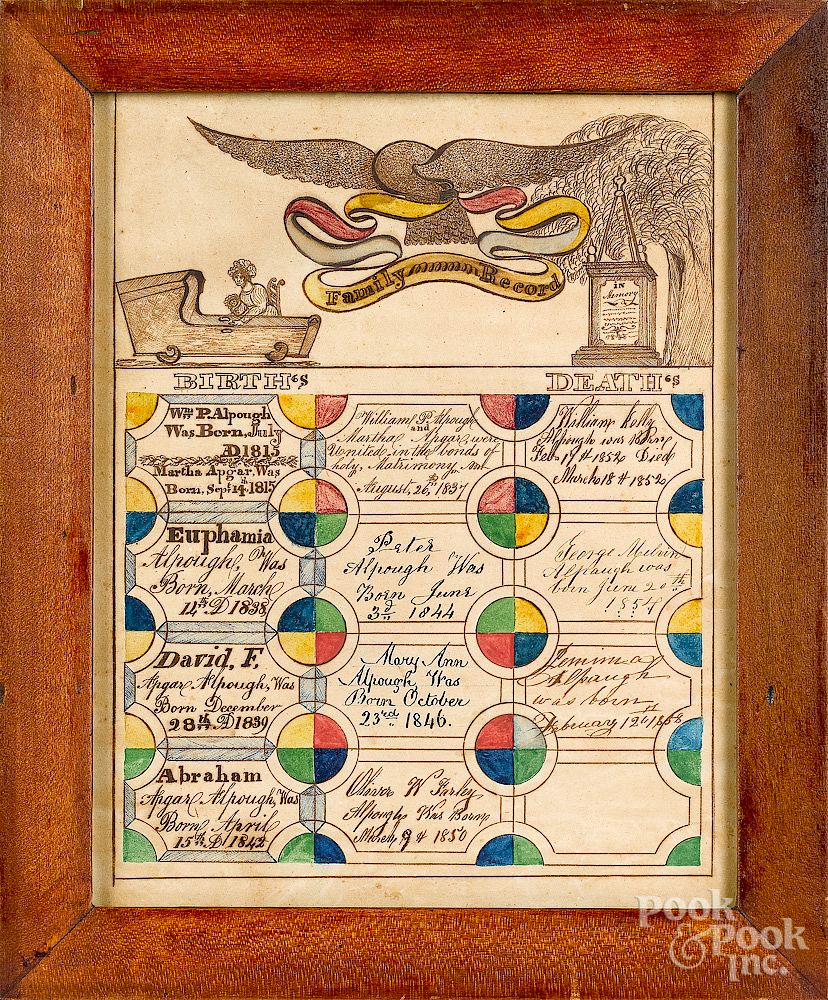 Family Record
IN
Memory
BIRTH'S
DEATH'S
Wm P. Alpough
Was Born, July
AD 1815
Martha Apgar, Was
Born, Sept. 14th 1815
William P. Alpough
and
Martha Apgar were
United in the bonds of
holy, Matrimony
August, 26th 1837
William
Alpough was Born
Feb 19th 1852 Died
March 18th 1852
Euphamia
Alpough, Was
Born, March
D 1838
Peter
Alpough Was
Born June
3d 1844
George Melvin
Alpaugh was
born June 20th
David, F.
Apgar Alpough, Was
Born December
28th D 1839
Mary Ann
Alpough Was
Born October
23rd 1846.
Jemima
Alpaugh
was born
February 12th 1858
Abraham
Apgar Alpough, Was
Born April
15th D 1842
Oliver W
Alpough Was Born
March 9th 1850
POOK
& POOK
INC.